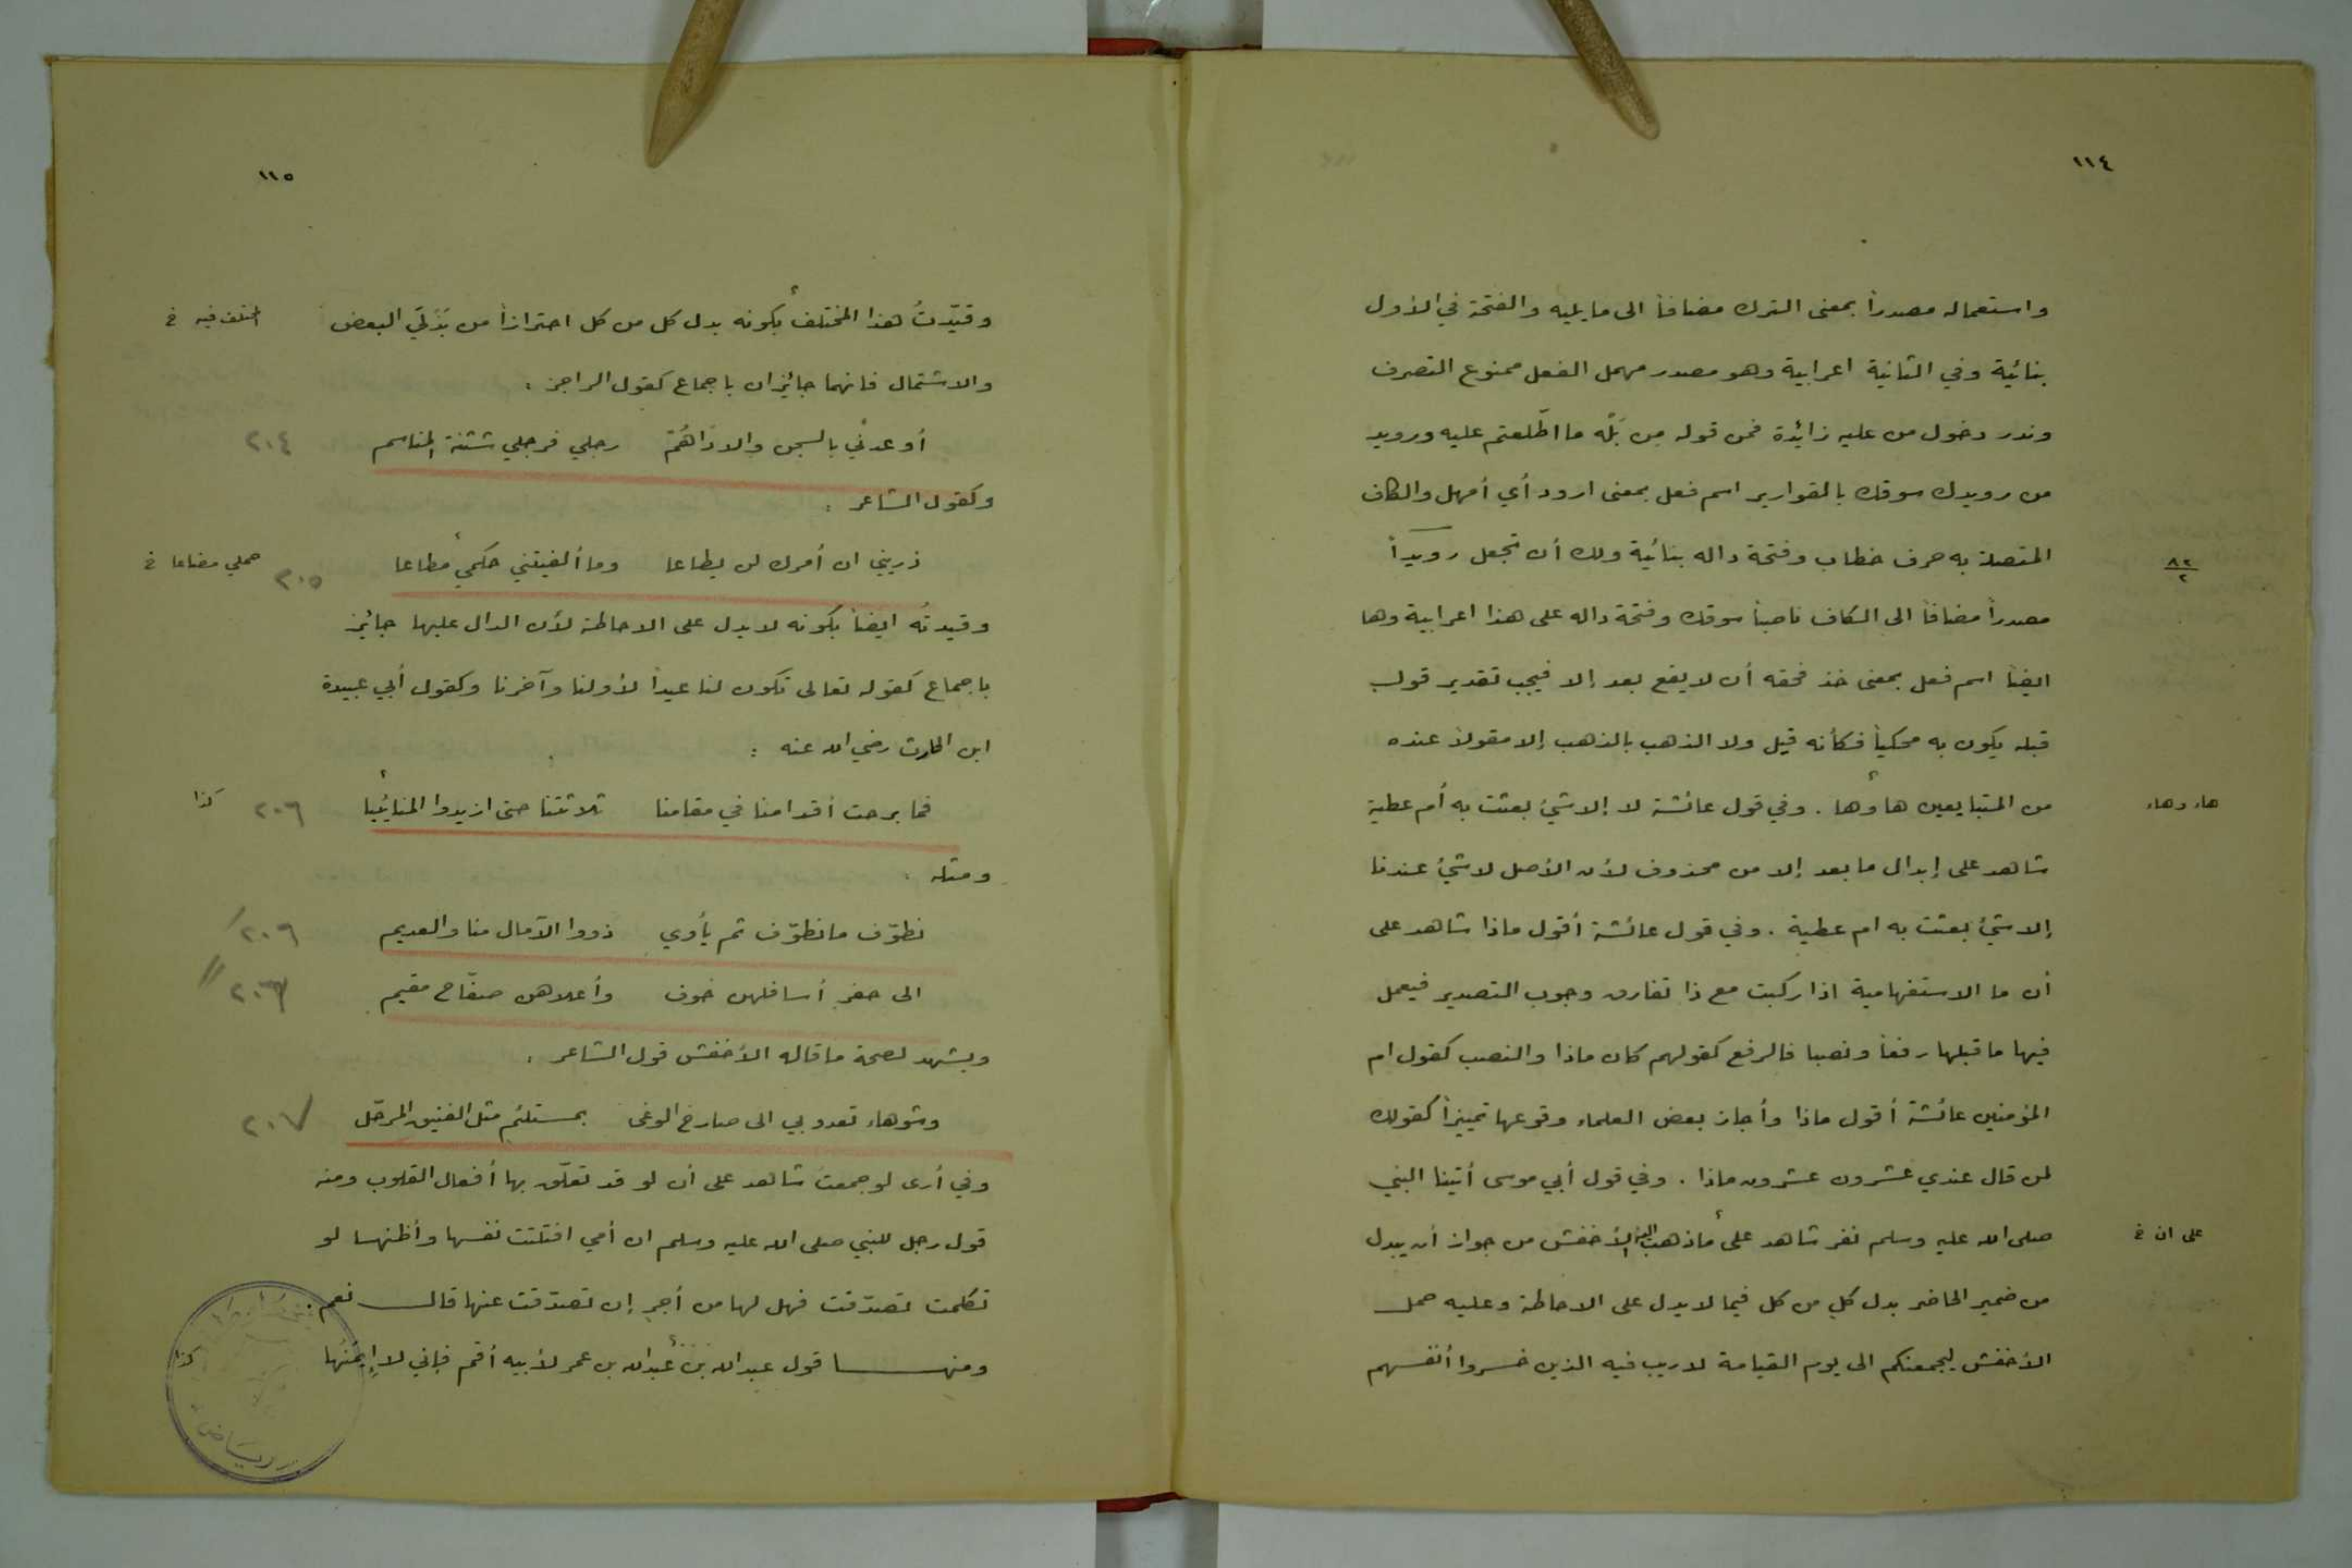 ١١٤
واستعماله مصدراً بمعنى الترك مضافاً الى ما يليه والفتحة في الأول
بنائية وفي الثانية اعرابية وهو مصدر مهمل الفعل ممنوع التصرف
وندر دخول من عليه زائدة فمن قوله مِن بَلْه ما اطّلعتم عليه ورويد
من رويدك سوقك بالقوارير اسم فعل بمعنى ارود أي أمهل والكاف
المتصلة به حرف خطاب وفتحة داله بنائية ولك أن تجعل رويداً
٨٢/٢
مصدراً مضافاً الى الكاف ناصباً سوقك وفتحة داله على هذا اعرابية وها
ايضاً اسم فعل بمعنى خذ فحقه أن لا يقع بعد إلا فيجب تقدير قول
قبله يكون به محكياً فكأنه قيل ولا الذهب بالذهب إلا مقولاً عنده
من المتبايعين ها وها . وفي قول عائشة لا إلا شيء بعثت به أم عطية
هاء وهاء
شاهد على إبدال ما بعد إلا من محذوف لأن الأصل لا شيء عندنا
إلا شيء بعثت به ام عطية . وفي قول عائشة أقول ماذا شاهد على
أن ما الاستفهامية اذا ركبت مع ذا تفارق وجوب التصدير فيعمل
فيها ما قبلها رفعاً ونصبا فالرفع كقولهم كان ماذا والنصب كقول ام
المؤمنين عائشة أقول ماذا وأجاز بعض العلماء وقوعها تمييزاً كقولك
لمن قال عندي عشرون عشرون ماذا . وفي قول أبي موسى أتينا النبي
صلى الله عليه وسلم نفر شاهد على ما ذهب اليه الأخفش من جواز أن يبدل
على ان خ
من ضمير الحاضر بدل كلٍ من كل فيما لا يدل على الاحاطة وعليه حمل
الأخفش ليجمعنكم الى يوم القيامة لا ريب فيه الذين خسروا أنفسهم
١١٥
وقيّدتُ هذا المختلف بكونه بدل كل من كل احترازاً من بَدَلَيّ البعض
المختلف فيه خ
والاشتمال فانهما جائزان باجماع كقول الراجز :
أوعدني بالسجن والاداهُمِ رجلي فرجلي شثنة المناسم ٢٠٤
وكقول الشاعر :
ذريني ان أمرك لن يطاعا وما ألفيتني حكمي مطاعا ٢٠٥
حملي مضاعا خ
وقيدتُه ايضاً بكونه لا يدل على الاحاطة لأن الدال عليها جائز
باجماع كقوله تعالى تكون لنا عيداً لأولنا وآخرنا وكقول أبي عبيدة
ابن الحارث رضي الله عنه :
فما برحت أقدامنا في مقامنا ثلاثتنا حتى ازيدوا المنائيبا ٢٠٦
كذا
ومثله :
نطوّف ما نطوّف ثم يأوي ذووا الآمال منا والعديم ٢٠٦/
الى حفرٍ أسافلهن خوف وأعلاهن صفّاح مقيم ٢٠٦//
ويشهد لصحة ما قاله الأخفش قول الشاعر :
وشوهاء تعدو بي الى صارخ الوغى بمستلئم مثل الفنيق المرحّل ٢٠٧
وفي أرى لو جمعتَ شاهد على أن لو قد تعلّق بها أفعال القلوب ومنه
قول رجل للنبي صلى الله عليه وسلم ان أمي افتلتت نفسها وأظنها لو
تكلمت تصدّقت فهل لها من أجرٍ إن تصدّقت عنها قال نعم .
ومنها قول عبد الله بن عبد الله بن عمر لأبيه أقم فإني لا إِيمَنُها
كذا
الرياض